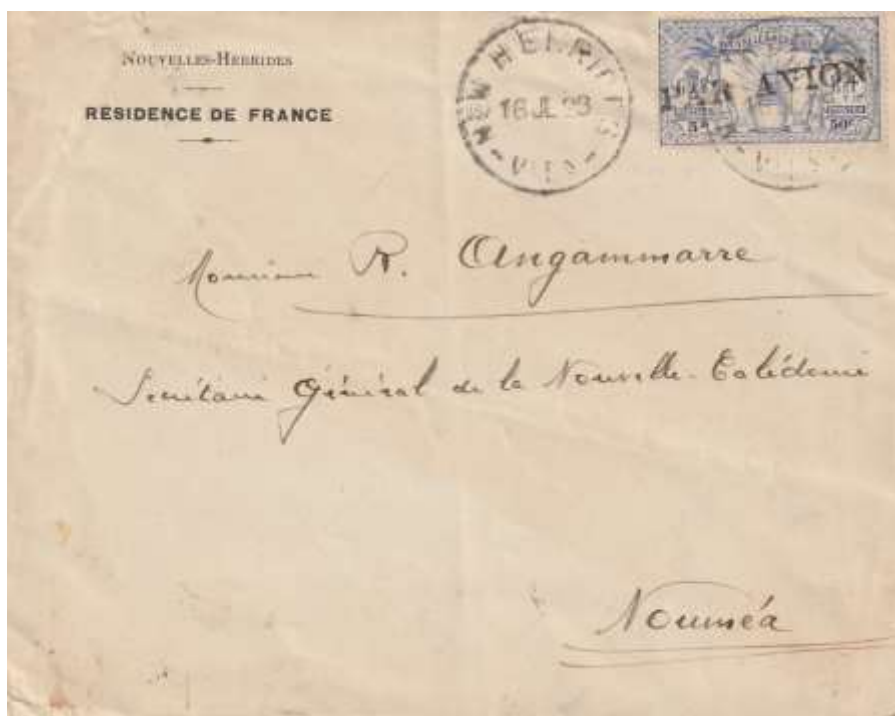 NOUVELLES-HEBRIDES
RESIDENCE DE FRANCE
NEW HEBRIDES
16 JL
VILA
PAR AVION
50c
Monsieur R. Angammarre
Secrétaire Général de la Nouvelle-Calédonie
Nouméa